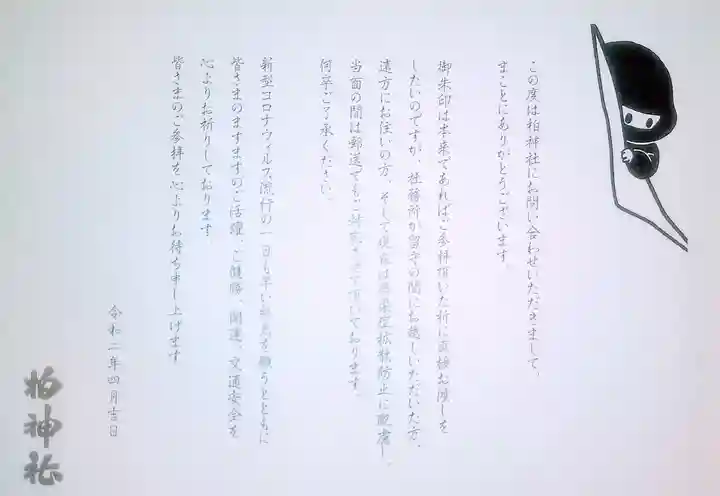 この度は柏神社にお問い合わせいただきまして、
まことにありがとうございます。
御朱印は本来であればご参拝頂いた折に直接お渡しを
したいのですが、社務所が留守の間にお越しいただいた方、
遠方にお住いの方、そして現在は感染症拡散防止に配慮し、
当面の間は郵送でもご対応させて頂いております。
何卒ご了承ください。
新型コロナウィルス流行の一日も早い終息を願うとともに
皆さまのますますのご活躍、ご健勝、開運、交通安全を
心よりお祈りしております
皆さまのご参拝を心よりお待ち申し上げます
令和二年四月吉日
柏神社